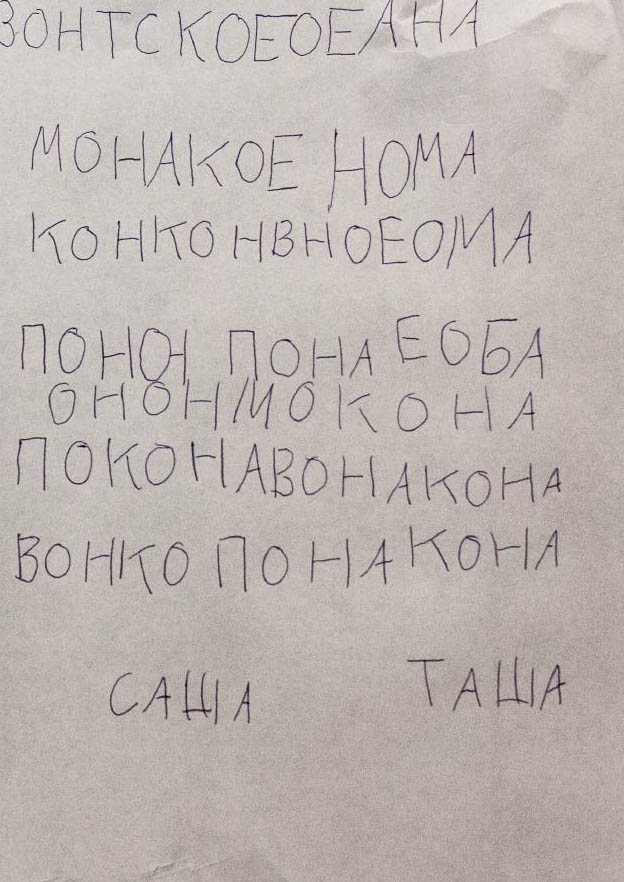 ВОНТСКОЕОЕАНА
МОНАКОЕ НОМА
КОНКОНВНОЕОМА
ПОНОН ПОНА ЕОБА
ОНОНМОКОНА
ПОКОНАВОНАКОНА
ВОНКО ПОНАКОНА
САША ТАША